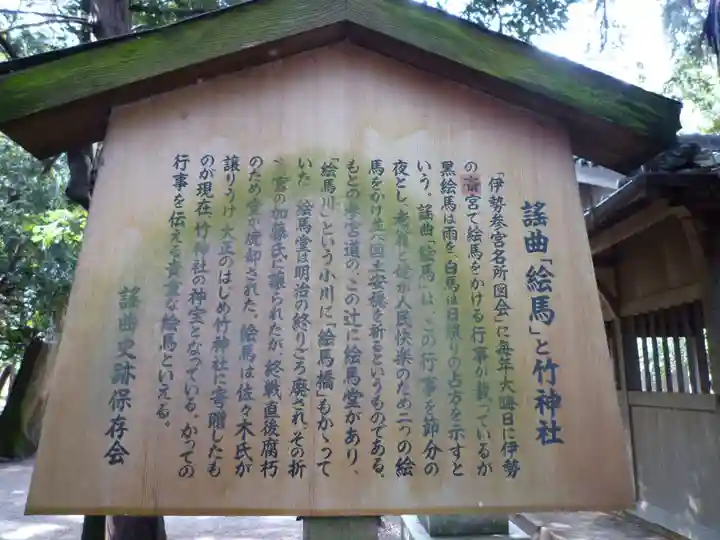 謡曲「絵馬」と竹神社
「伊勢参宮名所図会」に毎年大晦日に伊勢
の斎宮で絵馬をかける行事が載っているが
黒絵馬は雨を、白馬は日照りの占方を示すと
いう。謡曲「絵馬」は、この行事を節分の
夜とし、老翁と姥が人民快楽のため二つの絵
馬をかけ並べ国土安穏を祈るというものである。
もとの参宮道の、この辻に絵馬堂があり、
「絵馬川」という小川に「絵馬橋」もかゝって
いた。絵馬堂は明治の終りごろ廃され、その折
宮の加藤氏に譲られたが、終戦直後腐朽
のため堂が廃却された。絵馬は佐々木氏が
譲りうけ、大正のはじめ竹神社に寄贈したも
のが現在、竹神社の神宝となっている。かっての
行事を伝える貴重な絵馬といえる。
謡曲史跡保存会